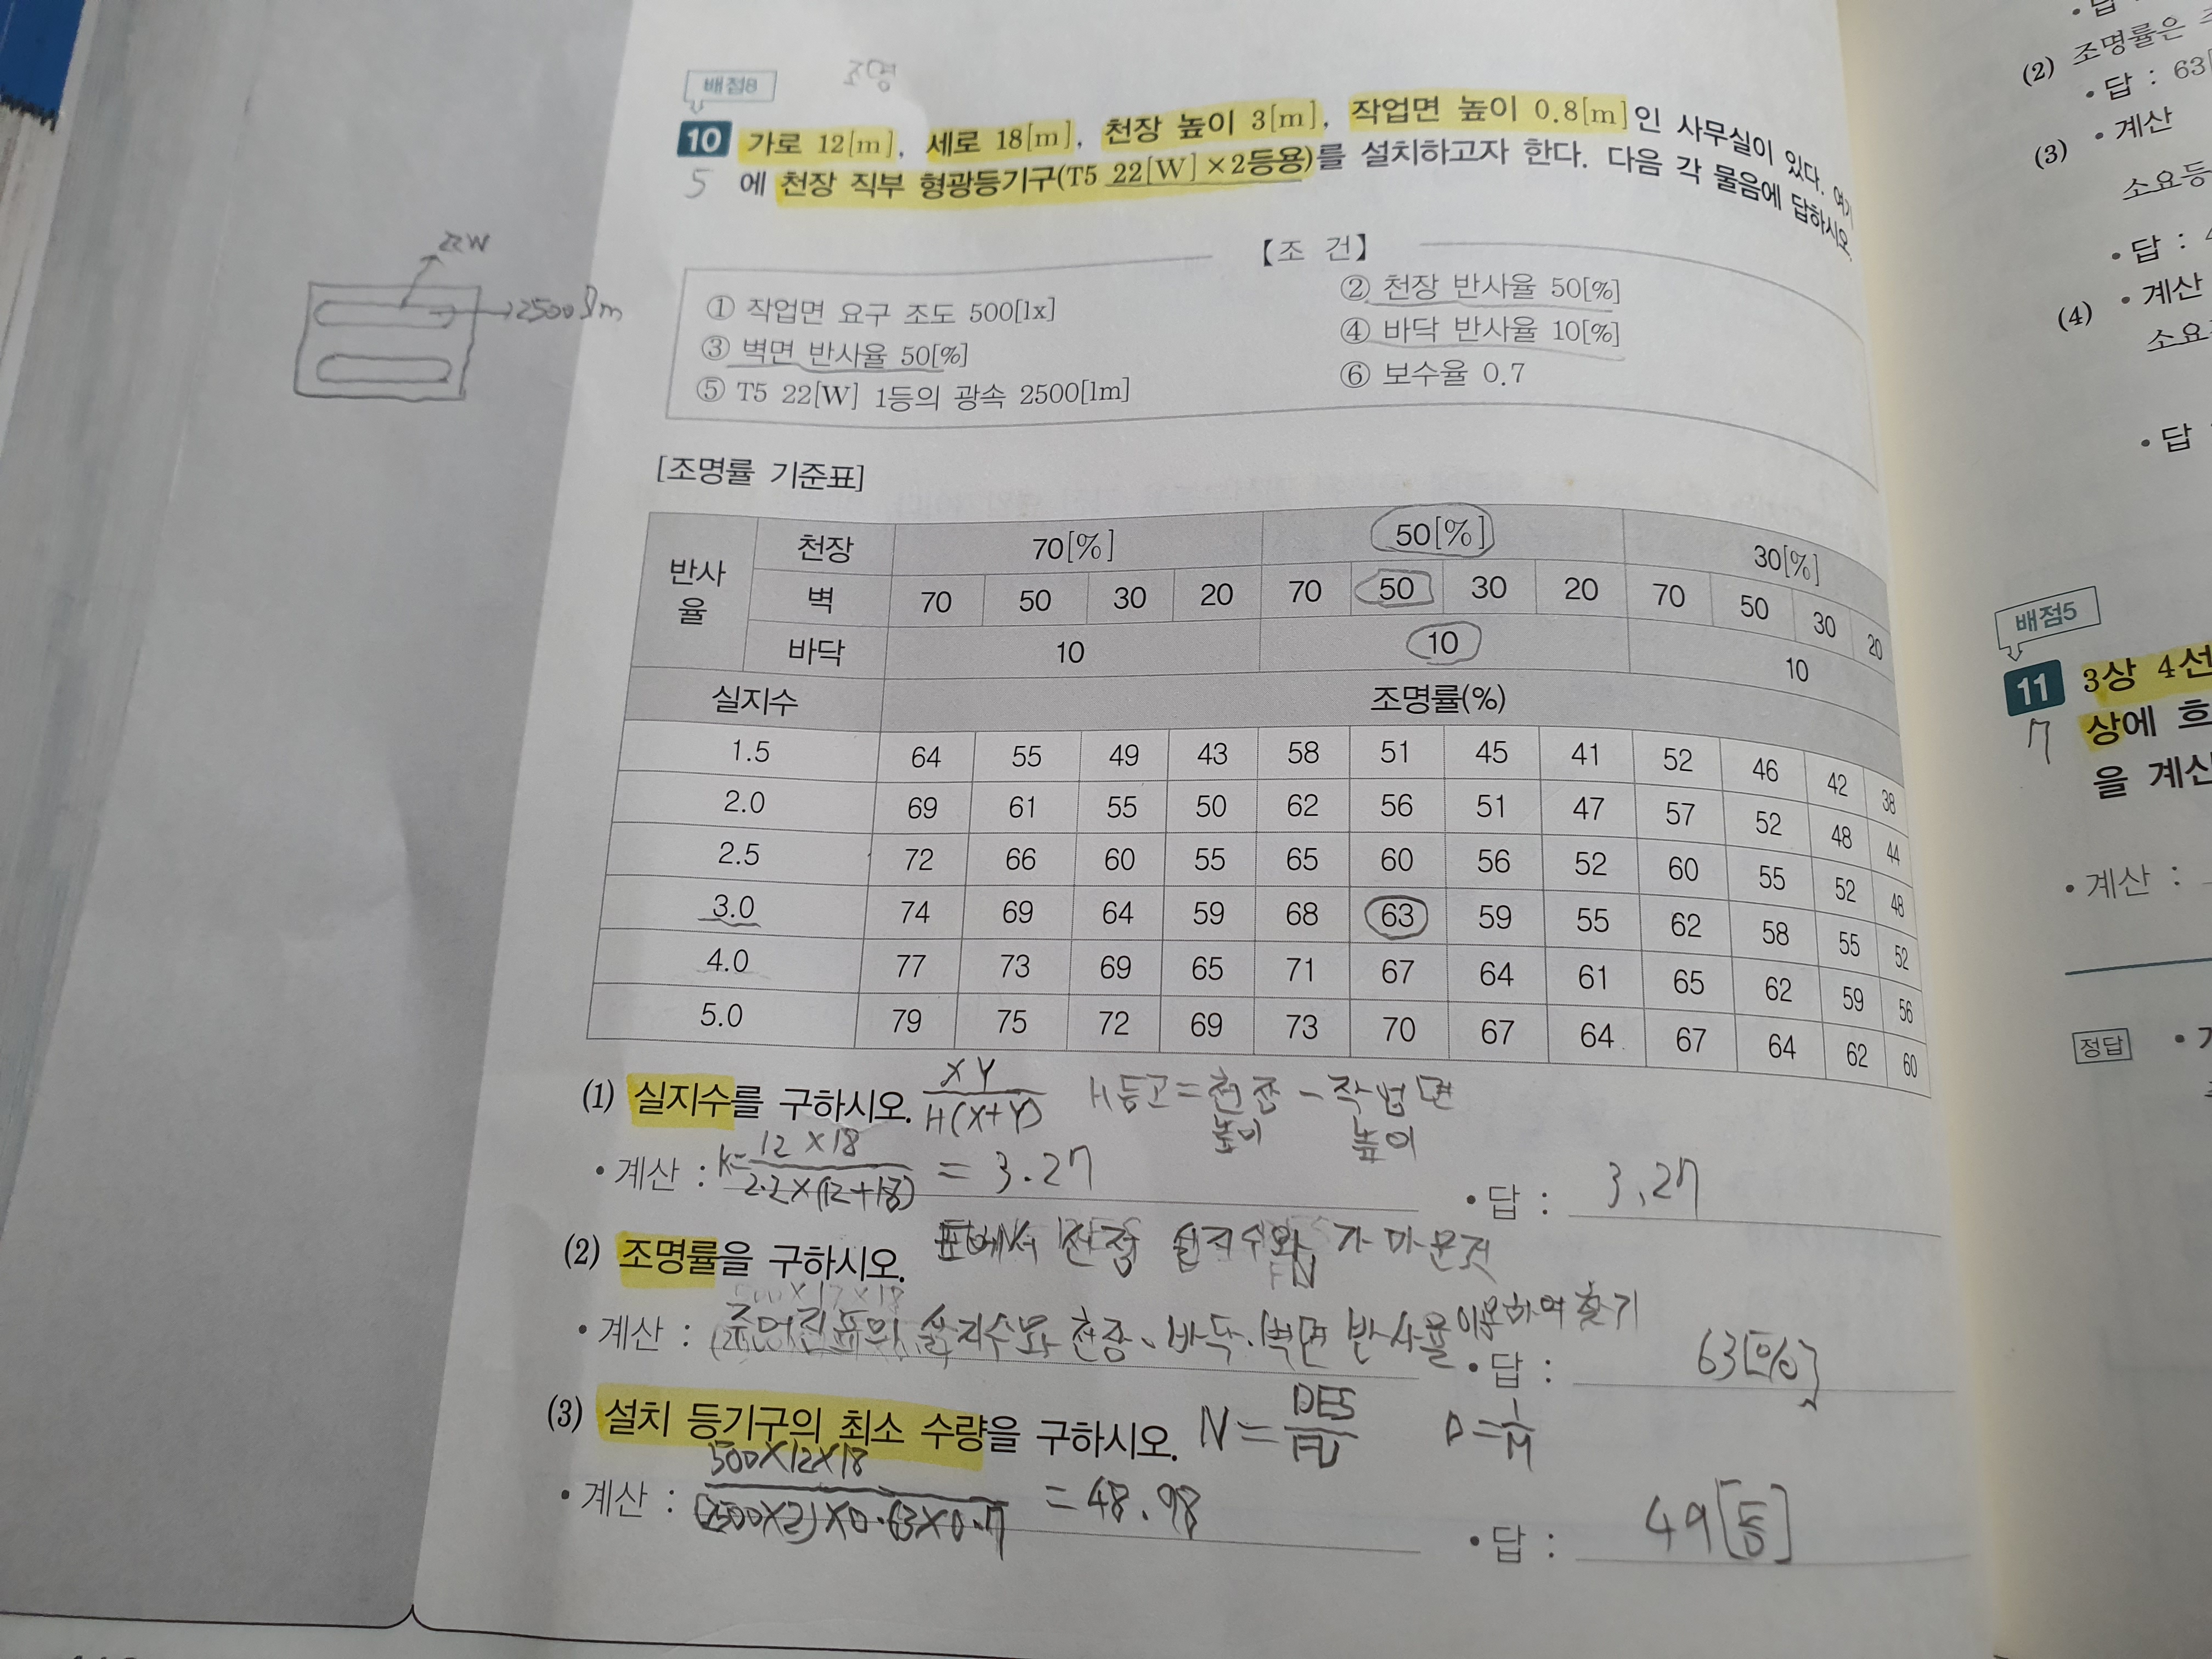 배점8
조명
10 가로 12[m], 세로 18[m], 천장 높이 3[m], 작업면 높이 0.8[m]인 사무실이 있다. 여기
5 에 천장 직부 형광등기구(T5 22[W]×2등용)를 설치하고자 한다. 다음 각 물음에 답하시오.
22W
2500lm
【조 건】
① 작업면 요구 조도 500[lx] ② 천장 반사율 50[%]
③ 벽면 반사율 50[%] ④ 바닥 반사율 10[%]
⑤ T5 22[W] 1등의 광속 2500[lm] ⑥ 보수율 0.7
[조명률 기준표]
반사율 천장 70[%] 50[%] 30[%]
벽 70 50 30 20 70 50 30 20 70 50 30 20
바닥 10 10 10
실지수 조명률(%)
1.5 64 55 49 43 58 51 45 41 52 46 42 38
2.0 69 61 55 50 62 56 51 47 57 52 48 44
2.5 72 66 60 55 65 60 56 52 60 55 52 48
3.0 74 69 64 59 68 63 59 55 62 58 55 52
4.0 77 73 69 65 71 67 64 61 65 62 59 56
5.0 79 75 72 69 73 70 67 64 67 64 62 60
(1) 실지수를 구하시오. XY / H(X+Y) H등고=천장높이 - 작업면높이
• 계산 : K= 12×18 / 2.2×(12+18) = 3.27 • 답 : 3.27
(2) 조명률을 구하시오. 표에서 실지수와
• 계산 : 주어진 표의 실지수와 천장, 바닥, 벽면 반사율 이용하여 찾기 • 답 : 63[%]
(3) 설치 등기구의 최소 수량을 구하시오. N= DES / FU D= 1 / M
• 계산 : 500×12×18 / (2500×2)×0.63×0.7 = 48.98 • 답 : 49[등]
(2) 조명률은
• 답 : 63
(3) • 계산
소요등
• 답 :
(4) • 계산
소요
• 답
배점5
11 3상 4선
7 상에 흐
을 계산
• 계산 :
정답